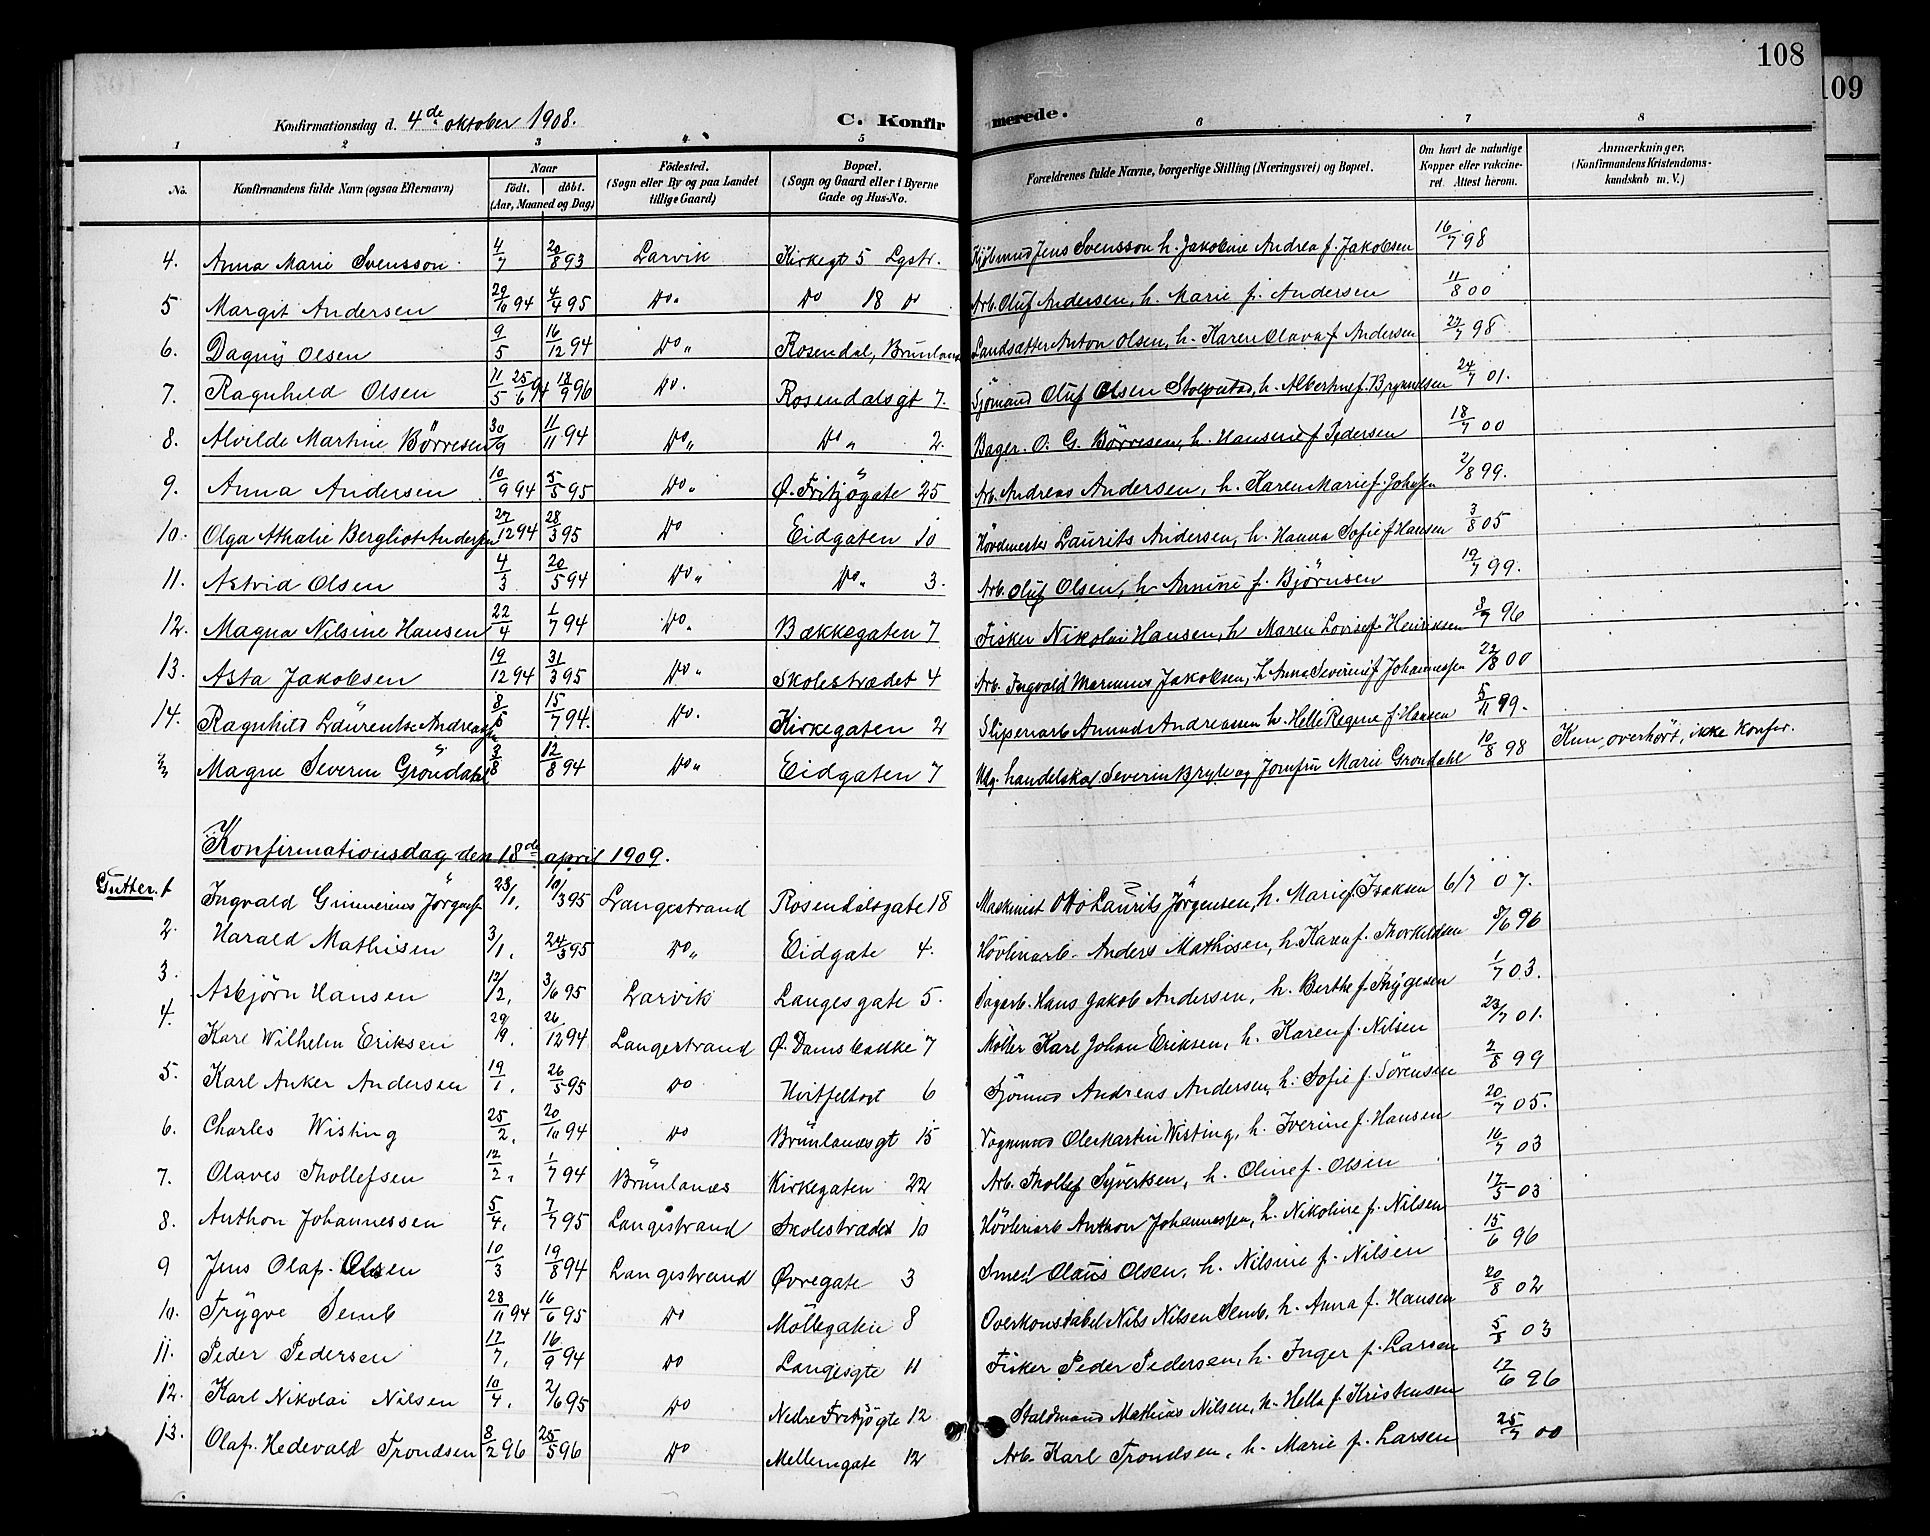 108
109
Konfirmationsdag d. 4de oktober 1908. C. Konfir merede.
1 2 3 4 5 6 7 8
No. Konfirmandens fulde Navn (ogsaa Efternavn) Naar födt. döbt. (Aar, Maaned og Dag) Födested. (Sogn eller By og paa Landet tillige Gaard) Bopæl. (Sogn og Gaard eller i Byerne Gade og Hus-No. Forældrenes fulde Navne, borgerlige Stilling (Næringsvei) og Bopæl. Om havt de naturlige Kopper eller vakcineret. Attest herom. Anmærkninger. (Konfirmandens Kristendomskundskab m. V.)
4. Anna Marie Svensson 4/7 20/8 93 Larvik Kirkegt 5 Lgstr. Kjöbmnd Jens Svensson h. Jakobine Andrea f. Jakobsen 16/7 98
5 Margit Andersen 29/6 94 4/4 95 Do. Do 18 Do Arb. Oluf Andersen, h. Marie f. Andersen 11/8 00
6. Dagny Olsen 9/5 16/12 94 Do„ Rosendal, Brunlanes Anton Olsen, h. Karen Olava f. Andersen 27/7 98
7. Ragnhild Olsen 11/5 25/6 94 18/9 96 Do. Rosendalsgt 7. Sjömand Oluf Olsen h. Albertine f. Bryntilsen 24/7 01.
8. Alvilde Martine Börresen 30/9 11/11 94 Do„ Do„ 2 Bager. O. G. Börresen, h. Hanserie f. Pedersen 18/7 00
9. Anna Andersen 10/9 94 5/5 95 Do„ Ø. Fritjögate 25 Arb. Andreas Andersen, h. Karen Marie f. Johnsen 2/8 99.
10. Olga Athalie Bergliot Andersen 27/12 94 28/3 95 Do Eidgaten 10 Laurits Andersen, h. Hanna Sofie f Hansen 3/8 05
11. Astrid Olsen 4/3 20/5 94 Do„ Do„ 3. Arb. Oluf Olsen, h Annine f. Björnsen 19/7 99.
12. Magna Nilsine Hansen 22/4 1/7 94 Do. Bækkegaten 7 Fisker Nikolai Hansen, h Maren Lovise f. Henriksen 3/7 96
13. Asta Jakobsen 19/12 94 31/3 95 Do„ Skolestrædet 4 Arb. Ingvald Marinus Jakobsen, h. Anna Severine f Johannessen 22/8 00
14. Ragnhild Laurentse Andreassen 8/6 15/7 94. Do. Kirkegaten 2 Sliperiarb Amund Andreassen h. Helle Regine f. Hansen 5/11 99.
Magne Severin Gröndahl 3/8 12/8 94 Do„ Eidgaten 7 Ug. handelskar Severin Bryte og Jomfru Marie Grondahl 10/8 98 Kun overhört, ikke konfir.
Konfirmationsdag den 18de april 1909.
Gutter. 1 Ingvald Gunerius Jörgensen 23/1. 10/3 95 Langestrand Rosendalsgate 18 Maskinist Otto Laurits Jörgensen, h. Marie f. Isaksen 6/7 07.
2. Harald Mathisen 3/1. 24/3 95 Do„ Eidgate 4. Hövleriarb. Anders Mathisen, h. Karen f. Thorkildsen 5/6 96
3. Asbjörn Hansen 12/2. 3/6 95 Larvik Langesgate 5. Sagarb. Hans Jakob Andersen, h. Berthe f. Thygesen 1/7 03.
4. Karl Wilhelm Eriksen 29/9. 26/12 94 Langestrand Ø. Damsbakke 7 Möller Karl Johan Eriksen, h. Karen f. Nilsen 23/7 01.
5. Karl Anker Andersen 19/1. 26/5 95 Do Hvitfeltsgt 6 Sjömnd Andreas Andersen, h. Sofie f. Sörensen 2/8 99
6. Charles Wisting 25/2. 20/10 94 Do Brunlanesgt 15 Vognmnd Ole Martin Wisting, h. Iverine f. Hansen 20/7 05.
7. Olaves Thollefsen 12/2. 1/7 94 Brunlanes Kirkegaten 22 Arb. Thollef Syvertsen, h. Oline f. Olsen 16/7 03
8. Anthon Johannessen 5/4. 7/7 95 Langestrand Skolestrædet 10 Hövleriarb Anthon Johannessen, h. Nikoline f. Nilsen 17/5 03
9 Jens Olaf Olsen 10/3 19/8 94 Langestrand Øvregate 3 Smed Olaus Olsen, h. Nilsine f. Nilsen 15/6 96
10. Trygve Semb 28/11 94 16/6 95 Do Möllegaten 8 Overkonstabel Nils Nilsen Semb, h. Anna f. Hansen 20/8 02
11. Peder Pedersen 17/7. 16/9 94 Do Langesgte 11 Fisker Peder Pedersen, h. Inger f. Larsen 5/8 03
12. Karl Nikolai Nilsen 10/4. 2/6 95 Do Nedre Fritjögte 12 Staldmand Mathias Nilsen, h. Hella f. Kristensen 17/6 96
13. Olaf Hedevald Trondsen 8/2 96 25/5 96 Do Mellemgate 12 Arb. Karl Trondsen, h. Marie f. Larsen 25/7 00